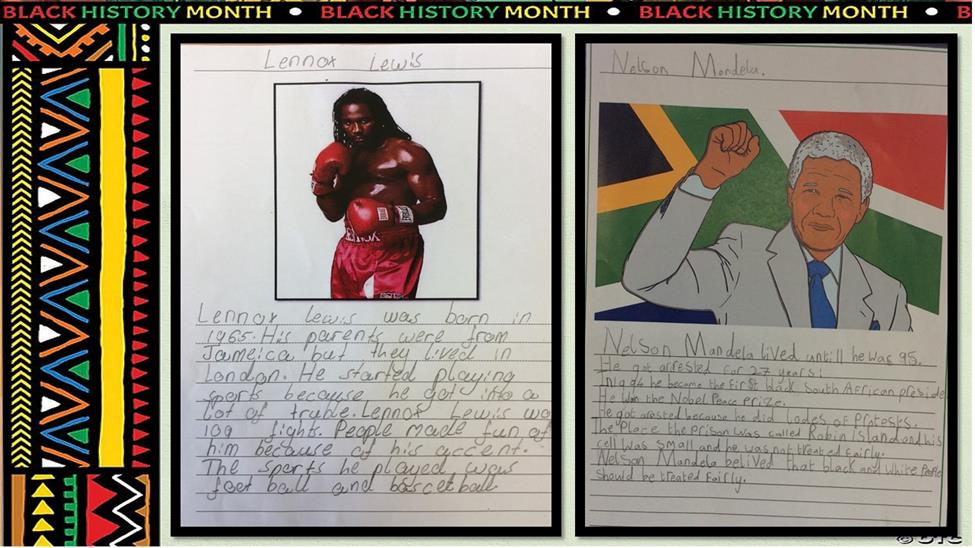 BLACK HISTORY MONTH • BLACK HISTORY MONTH • BLACK HISTORY MONTH • B
Lennox Lewis
LENNOX
Lennox Lewis was born in
1965. His parents were from
Jameica but they lived in
London. He started playing
sports because he got into a
lot of truble. Lennox Lewis wo
109 fights. People made fun of
him because of his accent.
The sports he played was
foot ball and bascetball
Nelson Mandela.
Nelson Mandela lived untill he was 95.
He got arrested for 27 years!
In 1994 he became the first black South African preside
He won the Nobel Peace Prize.
He got arested because he did lodes of Protests.
The Place the prison was called Robin Island and his
cell was small and he was not treated fairly.
Nelson Mandela belived that black and white People
should be treated Fairly.
© DTC